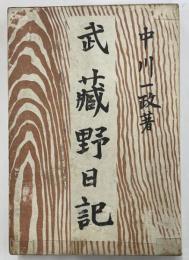 中川一政著
武蔵野日記